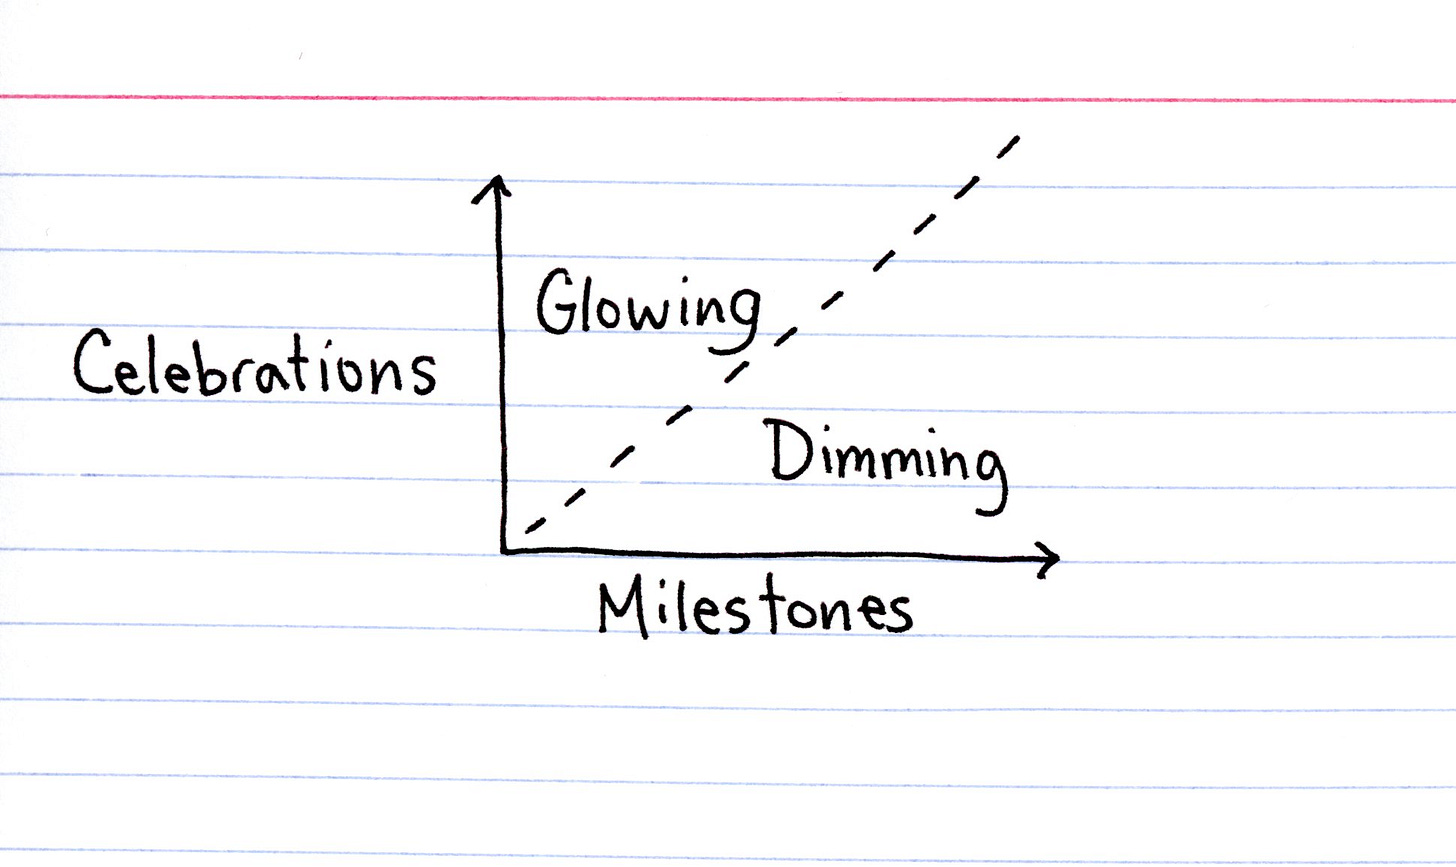 Glowing
Celebrations
Dimming
Milestones